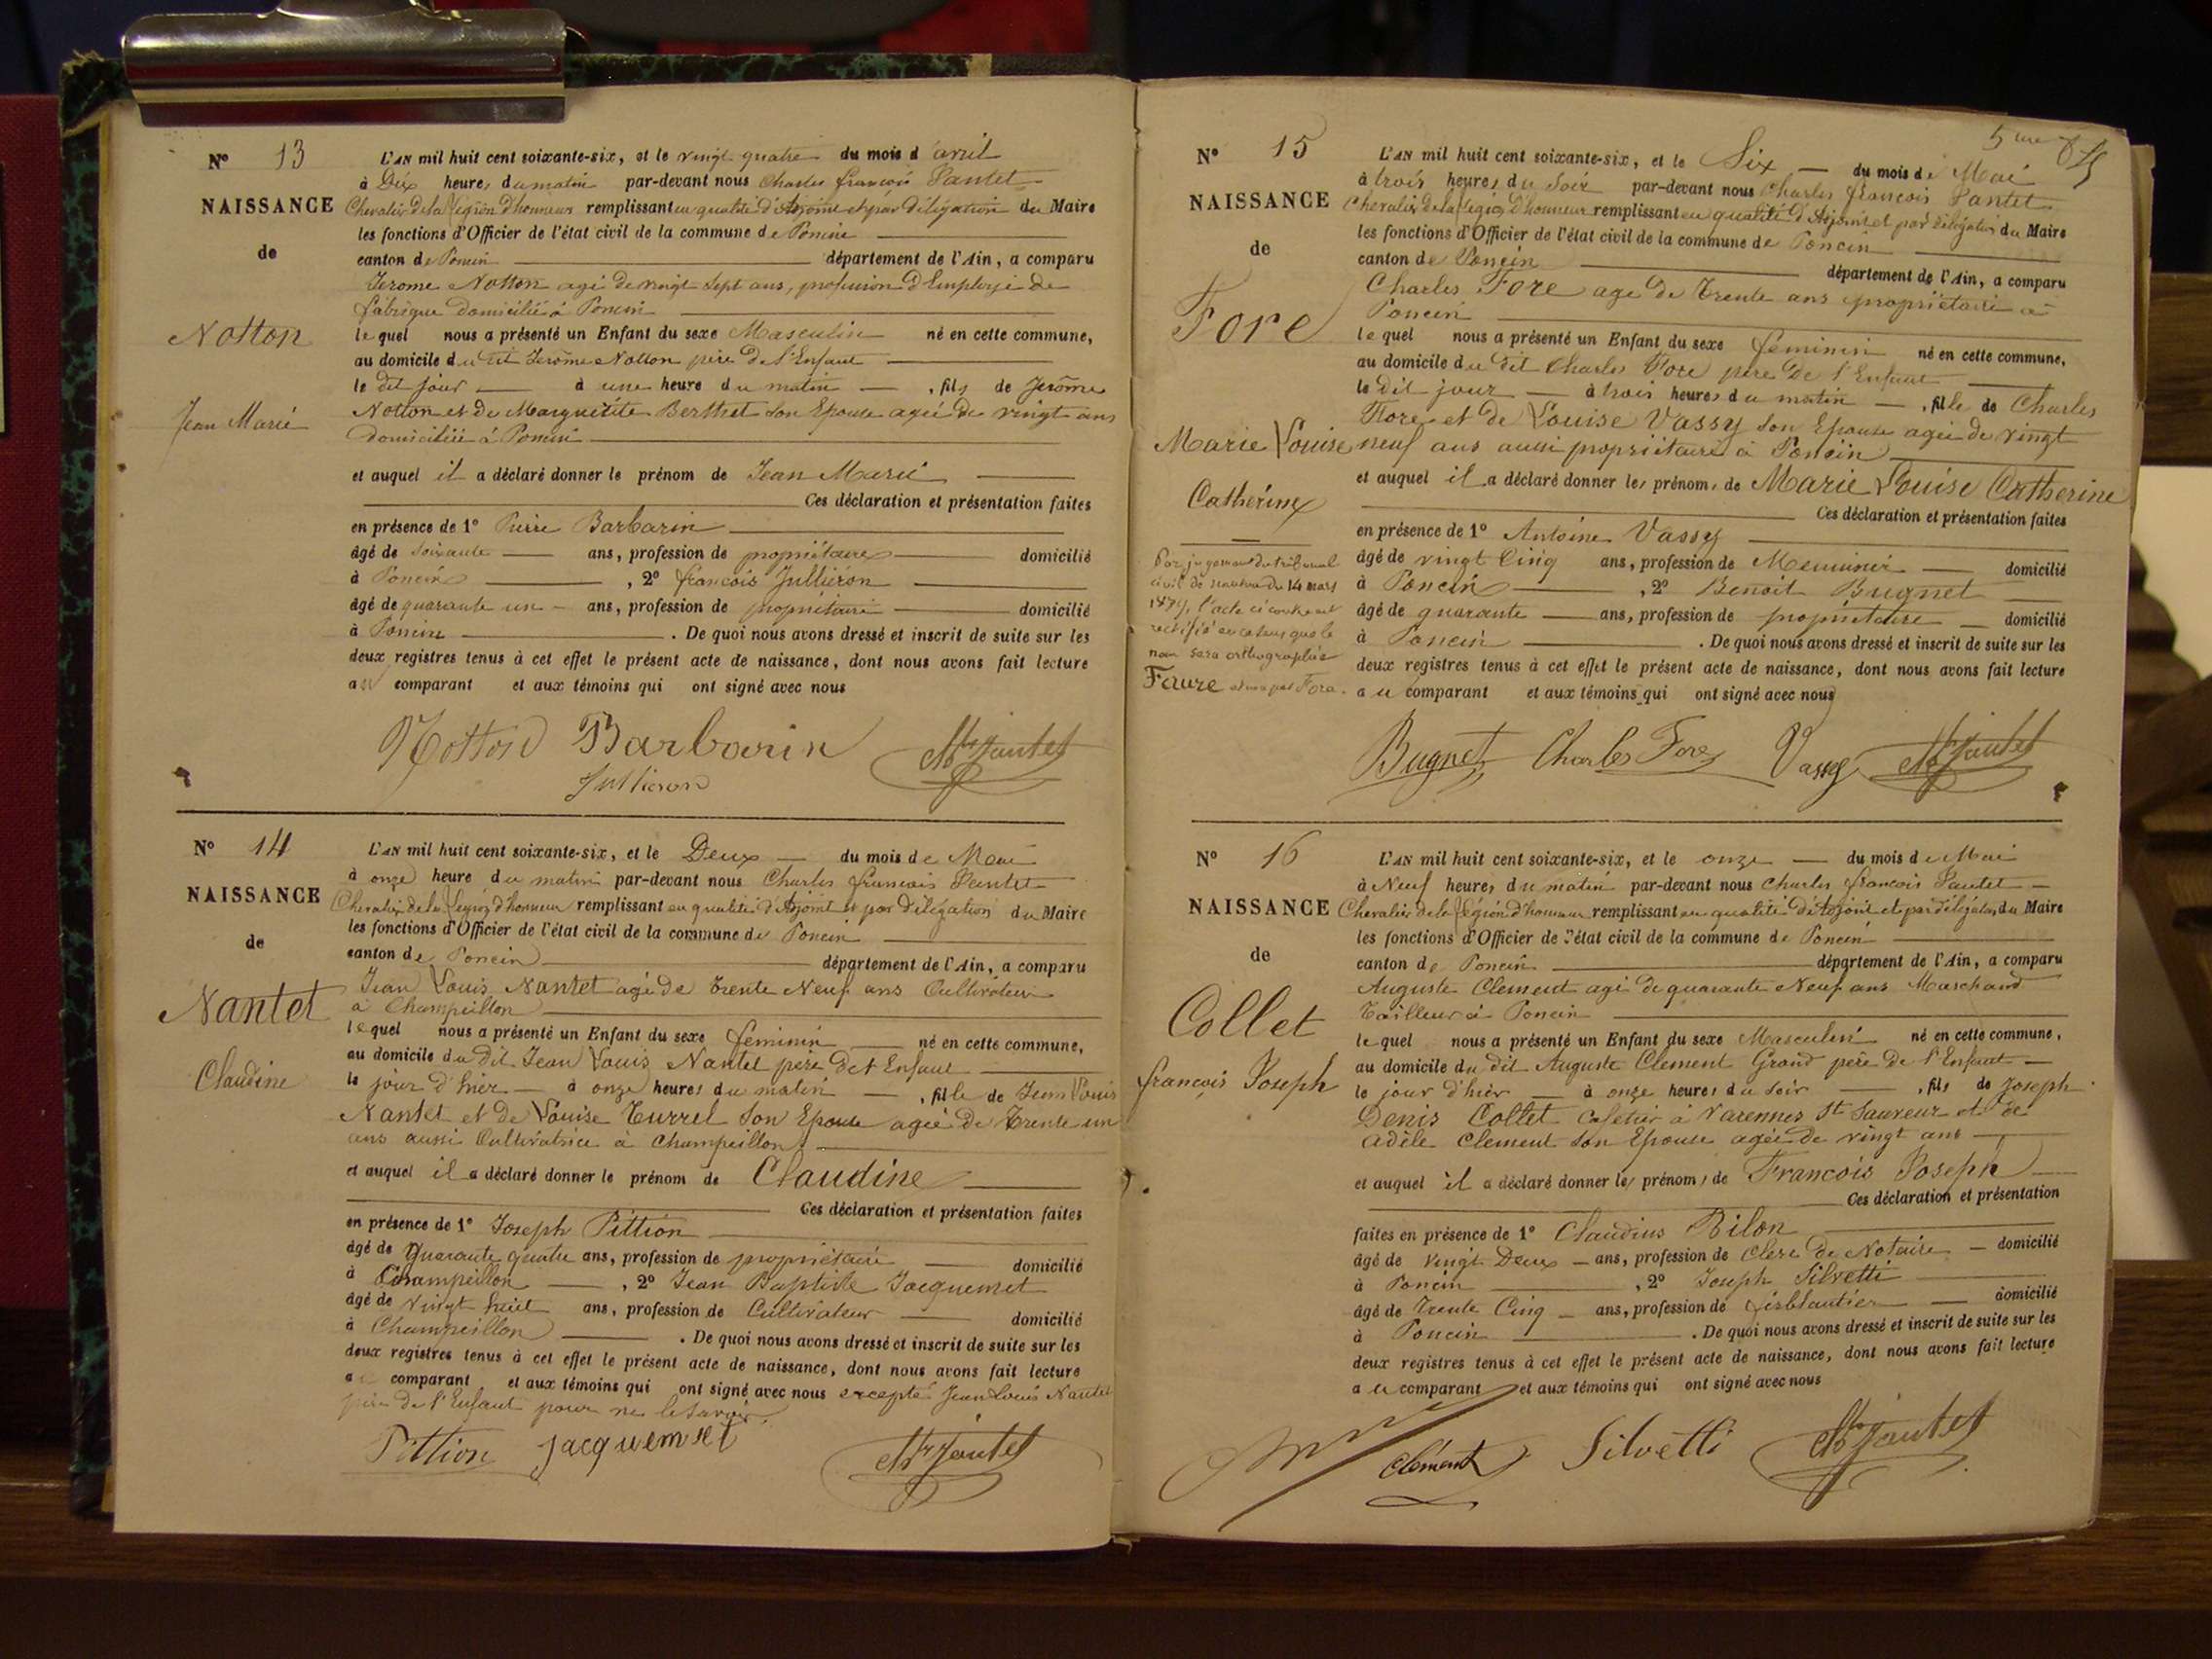 N° 13
NAISSANCE
de
Notton
Jean Marie
L'AN mil huit cent soixante-six, et le vingt quatre du mois d'avril
à Dix heures du matin par-devant nous Charles françois Pantet
Chevalier de la Légion d'honneur remplissant en qualité d'Adjoint et par délégation du Maire
les fonctions d'Officier de l'état civil de la commune de Poncin
canton de Poncin département de l'Ain, a comparu
Jerome Notton agé de vingt sept ans, profession d'Employé de
fabrique domicilié à Poncin
lequel nous a présenté un Enfant du sexe Masculin né en cette commune,
au domicile du dit Jerôme Notton père de l'Enfant
le dit jour à une heure du matin, fils de Jerôme
Notton et de Marguerite Berthet son Epouse agée de vingt ans
domiciliée à Poncin
et auquel il a déclaré donner le prénom de Jean Marie
Ces déclaration et présentation faites
en présence de 1° Pierre Barbarin
âgé de soixante ans, profession de propriétaire domicilié
à Poncin, 2° françois Jullieron
âgé de quarante un ans, profession de propriétaire domicilié
à Poncin. De quoi nous avons dressé et inscrit de suite sur les
deux registres tenus à cet effet le présent acte de naissance, dont nous avons fait lecture
au comparant et aux témoins qui ont signé avec nous
Notton Barbarin
Jullieron
N° 14
NAISSANCE
de
Nantet
Claudine
L'AN mil huit cent soixante-six, et le Deux du mois de Mai
à onze heure du matin par-devant nous Charles françois Pantet
Chevalier de la Légion d'honneur remplissant en qualité d'Adjoint et par délégation du Maire
les fonctions d'Officier de l'état civil de la commune de Poncin
canton de Poncin département de l'Ain, a comparu
Jean Louis Nantet agé de trente Neuf ans Cultivateur
à Champeillon
lequel nous a présenté un Enfant du sexe féminin né en cette commune,
au domicile du dit Jean Louis Nantet père de l'Enfant
le jour d'hier à onze heures du matin, fille de Jean Louis
Nantet et de Louise Turrel son Epouse agée de Trente un
ans aussi Cultivatrice à Champeillon
et auquel il a déclaré donner le prénom de Claudine
Ces déclaration et présentation faites
en présence de 1° Joseph Pittion
âgé de quarante quatre ans, profession de propriétaire domicilié
à Champeillon, 2° Jean Baptiste Jacquemet
âgé de vingt huit ans, profession de Cultivateur domicilié
à Champeillon. De quoi nous avons dressé et inscrit de suite sur les
deux registres tenus à cet effet le présent acte de naissance, dont nous avons fait lecture
au comparant et aux témoins qui ont signé avec nous excepté Jean Louis Nantet
père de l'Enfant pour ne le savoir.
Pittion Jacquemet
N° 15
NAISSANCE
de
Fore
Marie Louise
Catherine
Par jugement du tribunal
civil de nantua du 14 mars
1879, l'acte ci contre est
rectifié en ce sens que le
nom sera orthographié
Faure et non pas Fore.
L'AN mil huit cent soixante-six, et le Six du mois de Mai
à trois heures du soir par-devant nous Charles françois Pantet
Chevalier de la Légion d'honneur remplissant en qualité d'Adjoint et par délégation du Maire
les fonctions d'Officier de l'état civil de la commune de Poncin
canton de Poncin département de l'Ain, a comparu
Charles Fore agé de Trente ans propriétaire à
Poncin
lequel nous a présenté un Enfant du sexe féminin né en cette commune,
au domicile du dit Charles Fore père de l'Enfant
le dit jour à trois heures du matin, fille de Charles
Fore et de Louise Vassy son Epouse agée de vingt
neuf ans aussi propriétaire à Poncin
et auquel il a déclaré donner les prénoms de Marie Louise Catherine
Ces déclaration et présentation faites
en présence de 1° Antoine Vassy
âgé de vingt Cinq ans, profession de Menuisier domicilié
à Poncin, 2° Benoit Bugnet
âgé de quarante ans, profession de propriétaire domicilié
à Poncin. De quoi nous avons dressé et inscrit de suite sur les
deux registres tenus à cet effet le présent acte de naissance, dont nous avons fait lecture
au comparant et aux témoins qui ont signé avec nous
Bugnet Charles Fore Vassy
N° 16
NAISSANCE
de
Collet
françois Joseph
L'AN mil huit cent soixante-six, et le onze du mois de Mai
à Neuf heures du matin par-devant nous Charles françois Pantet
Chevalier de la Légion d'honneur remplissant en qualité d'Adjoint et par délégation du Maire
les fonctions d'Officier de l'état civil de la commune de Poncin
canton de Poncin département de l'Ain, a comparu
Auguste Clement agé de quarante Neuf ans Marchand
Tailleur à Poncin
lequel nous a présenté un Enfant du sexe Masculin né en cette commune,
au domicile du dit Auguste Clement Grand père de l'Enfant
le jour d'hier à onze heures du soir, fils de Joseph
Denis Collet Cafetier à Varennes St Sauveur et de
Adèle Clement son Epouse agée de vingt ans
et auquel il a déclaré donner les prénoms de Francois Joseph
Ces déclaration et présentation
faites en présence de 1° Claudius Bilon
âgé de vingt Deux ans, profession de Clerc de Notaire domicilié
à Poncin, 2° Joseph Silvetti
âgé de Trente Cinq ans, profession de ferblantier domicilié
à Poncin. De quoi nous avons dressé et inscrit de suite sur les
deux registres tenus à cet effet le présent acte de naissance, dont nous avons fait lecture
au comparant et aux témoins qui ont signé avec nous
Clément Silvetti